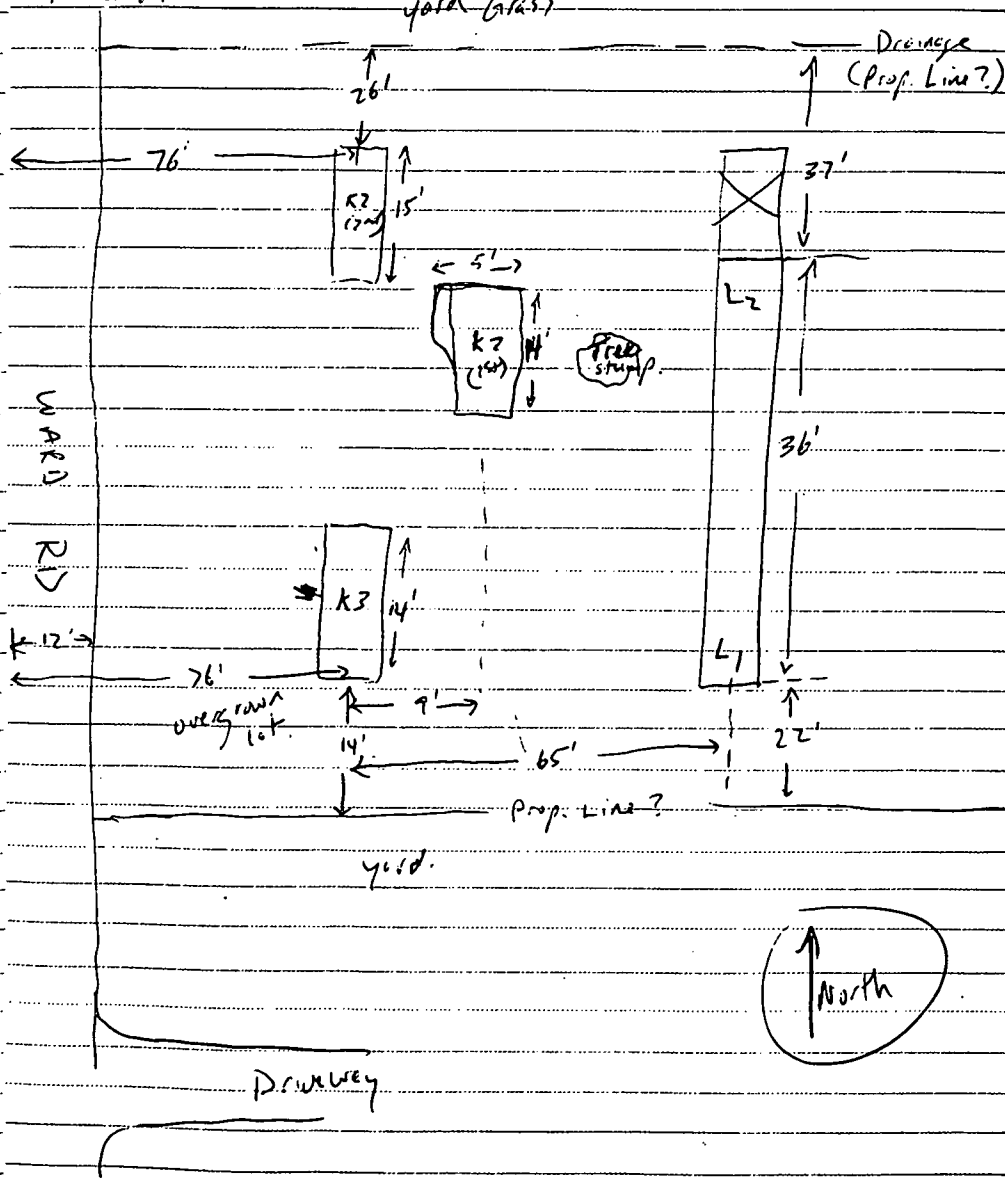 yard Grass
Drainage
(Prop. Line?)
26'
76'
37'
K2
(2nd)
15'
5'
L2
K2
(1st)
14'
Tree
stump.
36'
WARD RD
K3
14'
12'
L1
76'
9'
overgrown
lot.
14'
22'
65'
Prop. Line?
yard.
North
Driveway